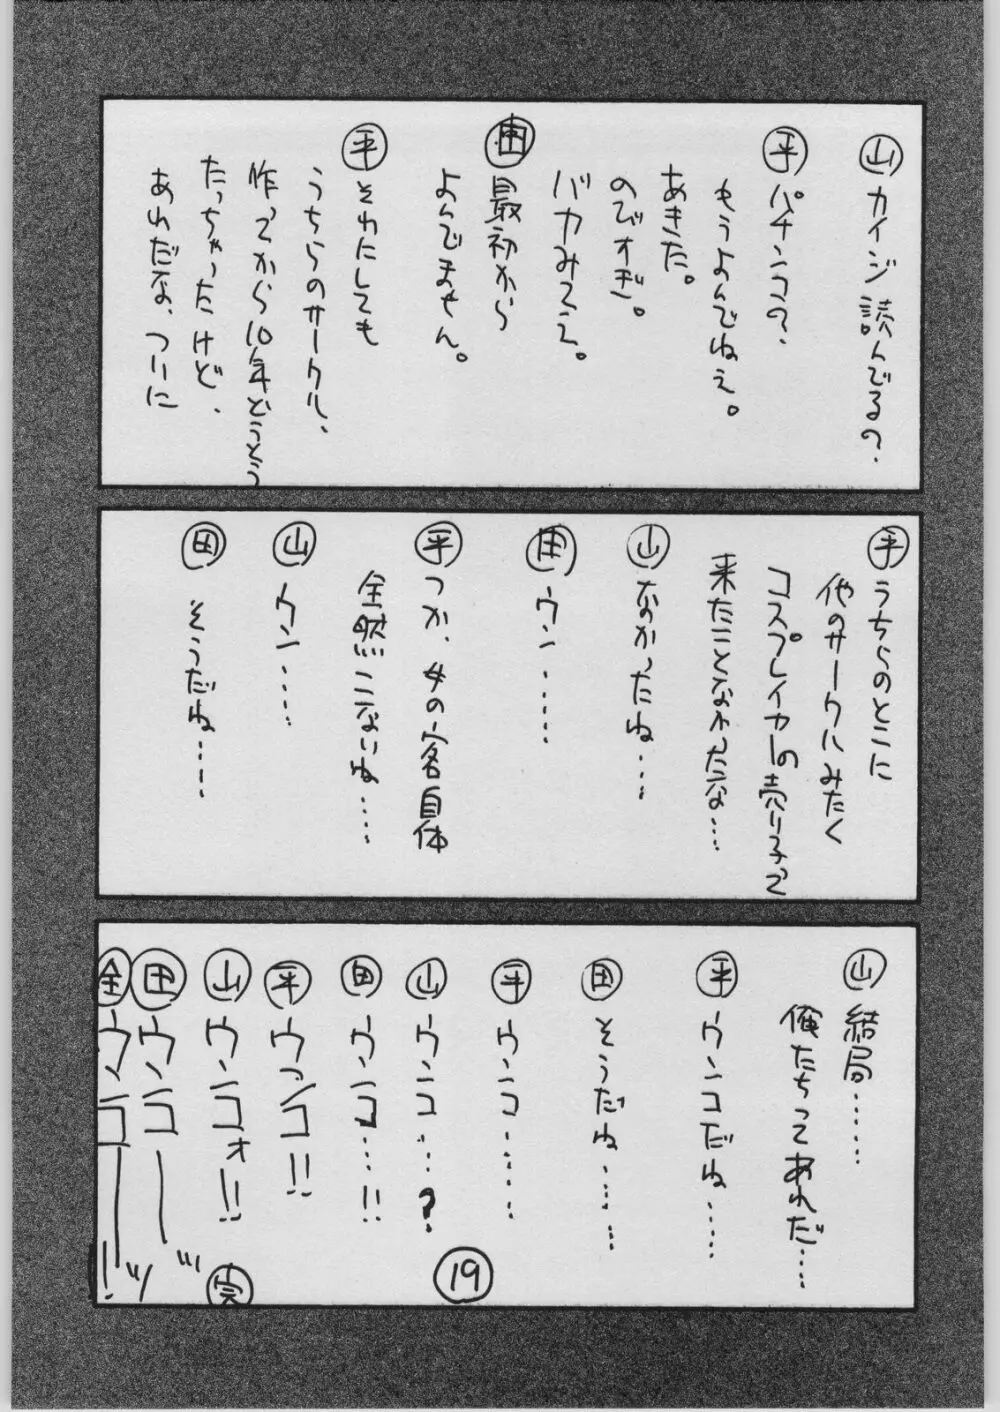 山 カイジ読んでるの?
平 パチンコの?
もうよんでねえ。
あきた。
のびすぎ。
バカみてえ。
田 最初から
よんでません。
平 それにしても
うちらのサークル、
作ってから10年とうとう
たっちゃったけど、
あれだな、ついに
平 うちらのとこに
他のサークルみたく
コスプレイヤーの売り子って
来たことなかったな…
山 なかったね……
田 ウン……
平 つか、女の客自体
全然こないね……
山 ウン……
田 そうだね……
山 結局……
俺たちってあれだ……
平 ウンコだね……
田 そうだね……
平 ウンコ……
山 ウンコ…?
田 ウンコ…!!
平 ウンコ!!
山 ウンコォ!!
田 ウンコーッ
全 ウンコーッ!
完
19